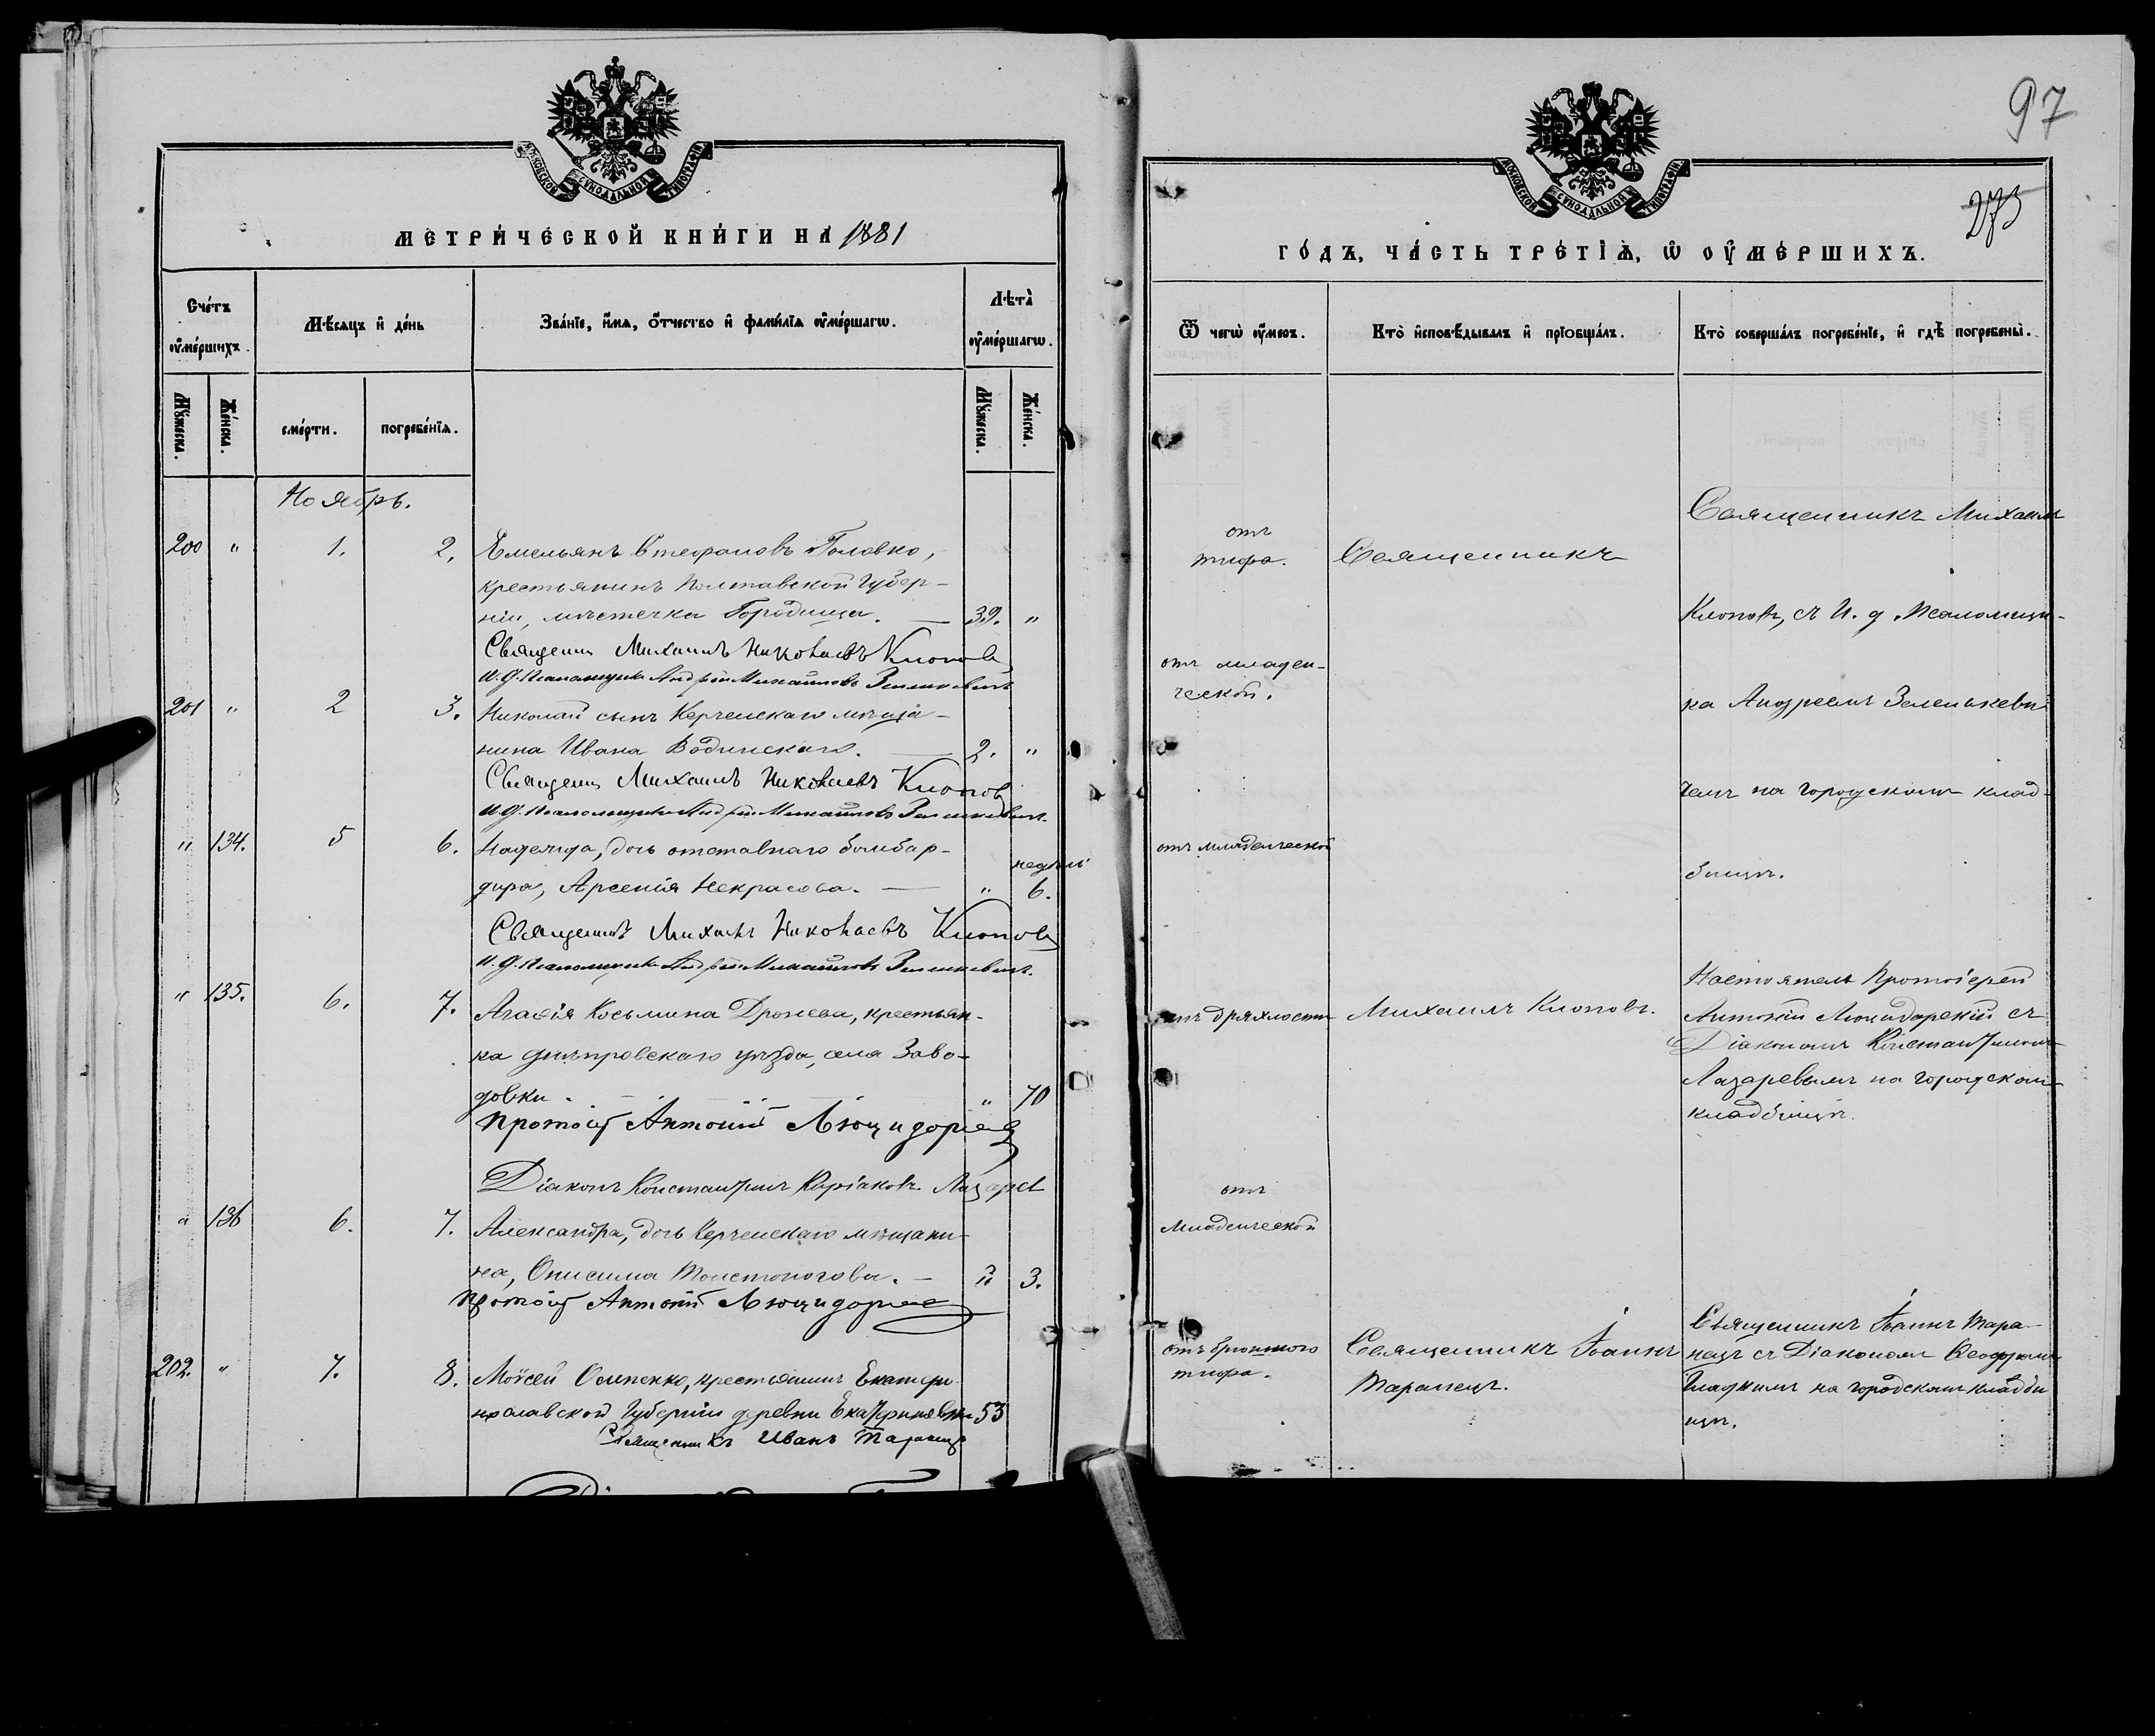 97
275
МОСКОВСКОЙ СѴНОДАЛЬНОЙ ТИПОГРАФІИ
МЕТРИ́ЧЕСКОЙ КНИ́ГИ НА̀ 1881
Сче́тъ ᲂу҆ме́ршихъ.
Мѣ́сяцъ и҆ де́нь
Зва́нїе, и҆́мѧ, ѻ҆́тчество и҆ фами́лїѧ ᲂу҆ме́ршагѡ.
Лѣта̀ ᲂу҆ме́ршагѡ.
Мꙋ́жеска.
Же́нска.
сме́рти.
погребе́нїѧ.
Мꙋ́жеска.
Же́нска.
Ноябрь.
200 " 1. 2. Емельянъ Стефановъ Головко,
крестьянинъ Полтавской губер-
ніи, мѣстечка Городища. — 39. "
Священ Михаилъ Николаевъ Клопов
И. д. Псаломщика Андрей Михайловъ Зеленкевичъ
201 " 2 3. Николай сынъ Керченскаго мѣща-
нина Ивана Водинскаго. — 2. "
Священ Михаилъ Николаевъ Клопов
И. д. Псаломщика Андрей Михайловъ Зеленкевичъ.
" 134. 5 6. Надежда, дочь отставнаго бомбар-
дира, Арсенія Некрасова. — " недѣль 6.
Священникъ Михаилъ Николаевъ Клопов
И. д. Псаломщика Андрей Михайловъ Зеленкевичъ.
" 135. 6. 7. Агаѳія Косьмина Дронева, крестьян-
ка днѣпровскаго уѣзда, села Заво-
довки. " 70
Протоіе Антоній Люцидар
Діаконъ Константинъ Киріаковъ Лазарев
" 136 6. 7. Александра, дочь Керченскаго мѣщани-
на, Онисима Толстоногова. — " 3.
Протоіе Антоній Люцидар
202. " 7. 8. Моѵсей Осипенко, крестьянинъ Екатери-
нославской Губерніи деревни Екатериновки 53
Священникъ Иванъ Таранецъ
МОСКОВСКОЙ СѴНОДАЛЬНОЙ ТИПОГРАФІИ
ГО́ДЪ, ЧА́СТЬ ТРЕ́ТЇѦ, Ѡ҆ ОУ҆МЕ́РШИХЪ.
Ѿ чегѡ̀ ᲂу҆́меръ.
Кто̀ и҆сповѣ́дывалъ и҆ прїѻбща́лъ.
Кто̀ соверша́лъ погребе́нїе, и҆ гдѣ̀ погребены̀.
отъ
тифа.
Священникъ
Священникъ Михаилъ
Клоповъ, съ И. д. Псаломщи-
отъ младен-
ческой.
ка Андреемъ Зеленкеви-
чемъ на городскомъ клад-
отъ младенческой
бищѣ.
отъ дряхлости
Михаилъ Клоповъ.
Настоятель Протоіерей
Антоній Люцидарскій съ
Діакономъ Константиномъ
Лазаревымъ на городскомъ
кладбищѣ.
отъ
младенческой
отъ брюшного
тифа.
Священникъ Іоаннъ
Таранецъ.
Священникъ Іоаннъ Тара-
нецъ съ Діакономъ
Гладкимъ на городскомъ кладби
щѣ.